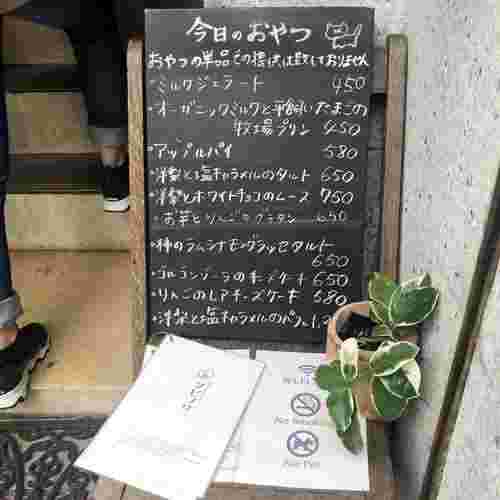 今日のおやつ
おやつの単品での提供は致しておりません
・ミルクジェラート 450
・オーガニックミルクと平飼いたまごの
牧場プリン 450
・アップルパイ 580
・洋梨と塩キャラメルのタルト 650
・洋梨とホワイトチョコのムース 750
・お芋とりんごのグラタン 650
・柿のラムシナモングラッセタルト
650
・ゴルゴンゾーラのチーズケーキ 650
・りんごのレアチーズケーキ 580
・洋梨と塩キャラメルのパフェ
Wi-Fi
No Smoking
No Pet